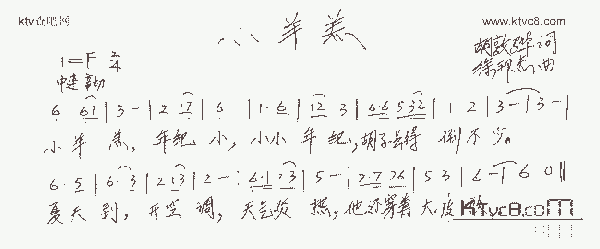 ktv查吧网
www.ktvc8.com
小羊羔
1=F 2/4
中速
词
曲
6 6 1 | 3 - | 2 1 7 | 6 | 1· 6 | 1 2 3 | 6·6 5 3 2 | 1 2 | 3 - | 3 - |
小羊羔,年纪小,小小年纪,胡子长得倒不少。
6·5 | 6·3 | 2 1 3 | 2 - | 6·1 3 | 5 - | 2·7 7 6 | 5 3 | 6 - | 6 0 ‖
夏天到,开空调,天气炎热,他还穿着大皮
ktvc8.com